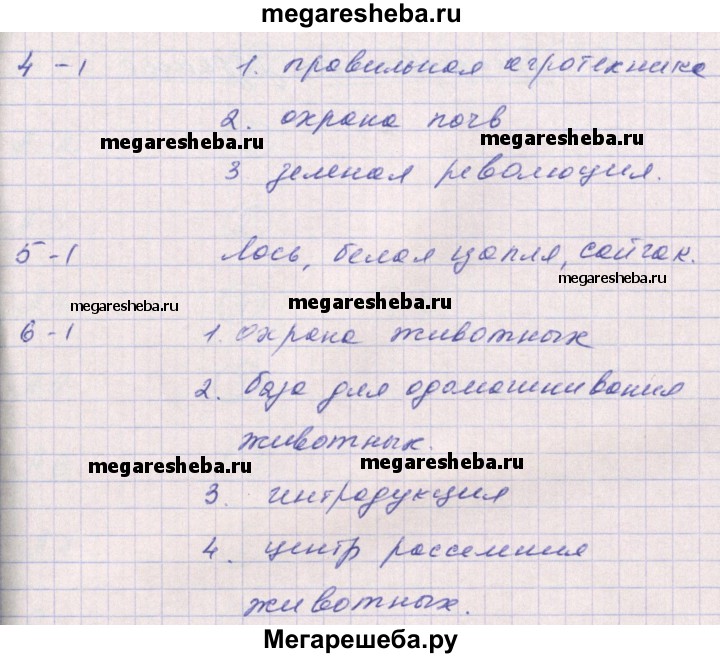 megaresheba.ru
4 - 1 1. правильная агротехника
2. охрана почв
megaresheba.ru megaresheba.ru
3 зеленая революция.
5 - 1 Лось, белая цапля, сайгак.
megaresheba.ru
megaresheba.ru megaresheba.ru
6 - 1 1. охрана животных
2. база для одомашнивания
животных.
megaresheba.ru megaresheba.ru
3. интродукция
4. центр расселения
животных.
Мегарешеба.ру